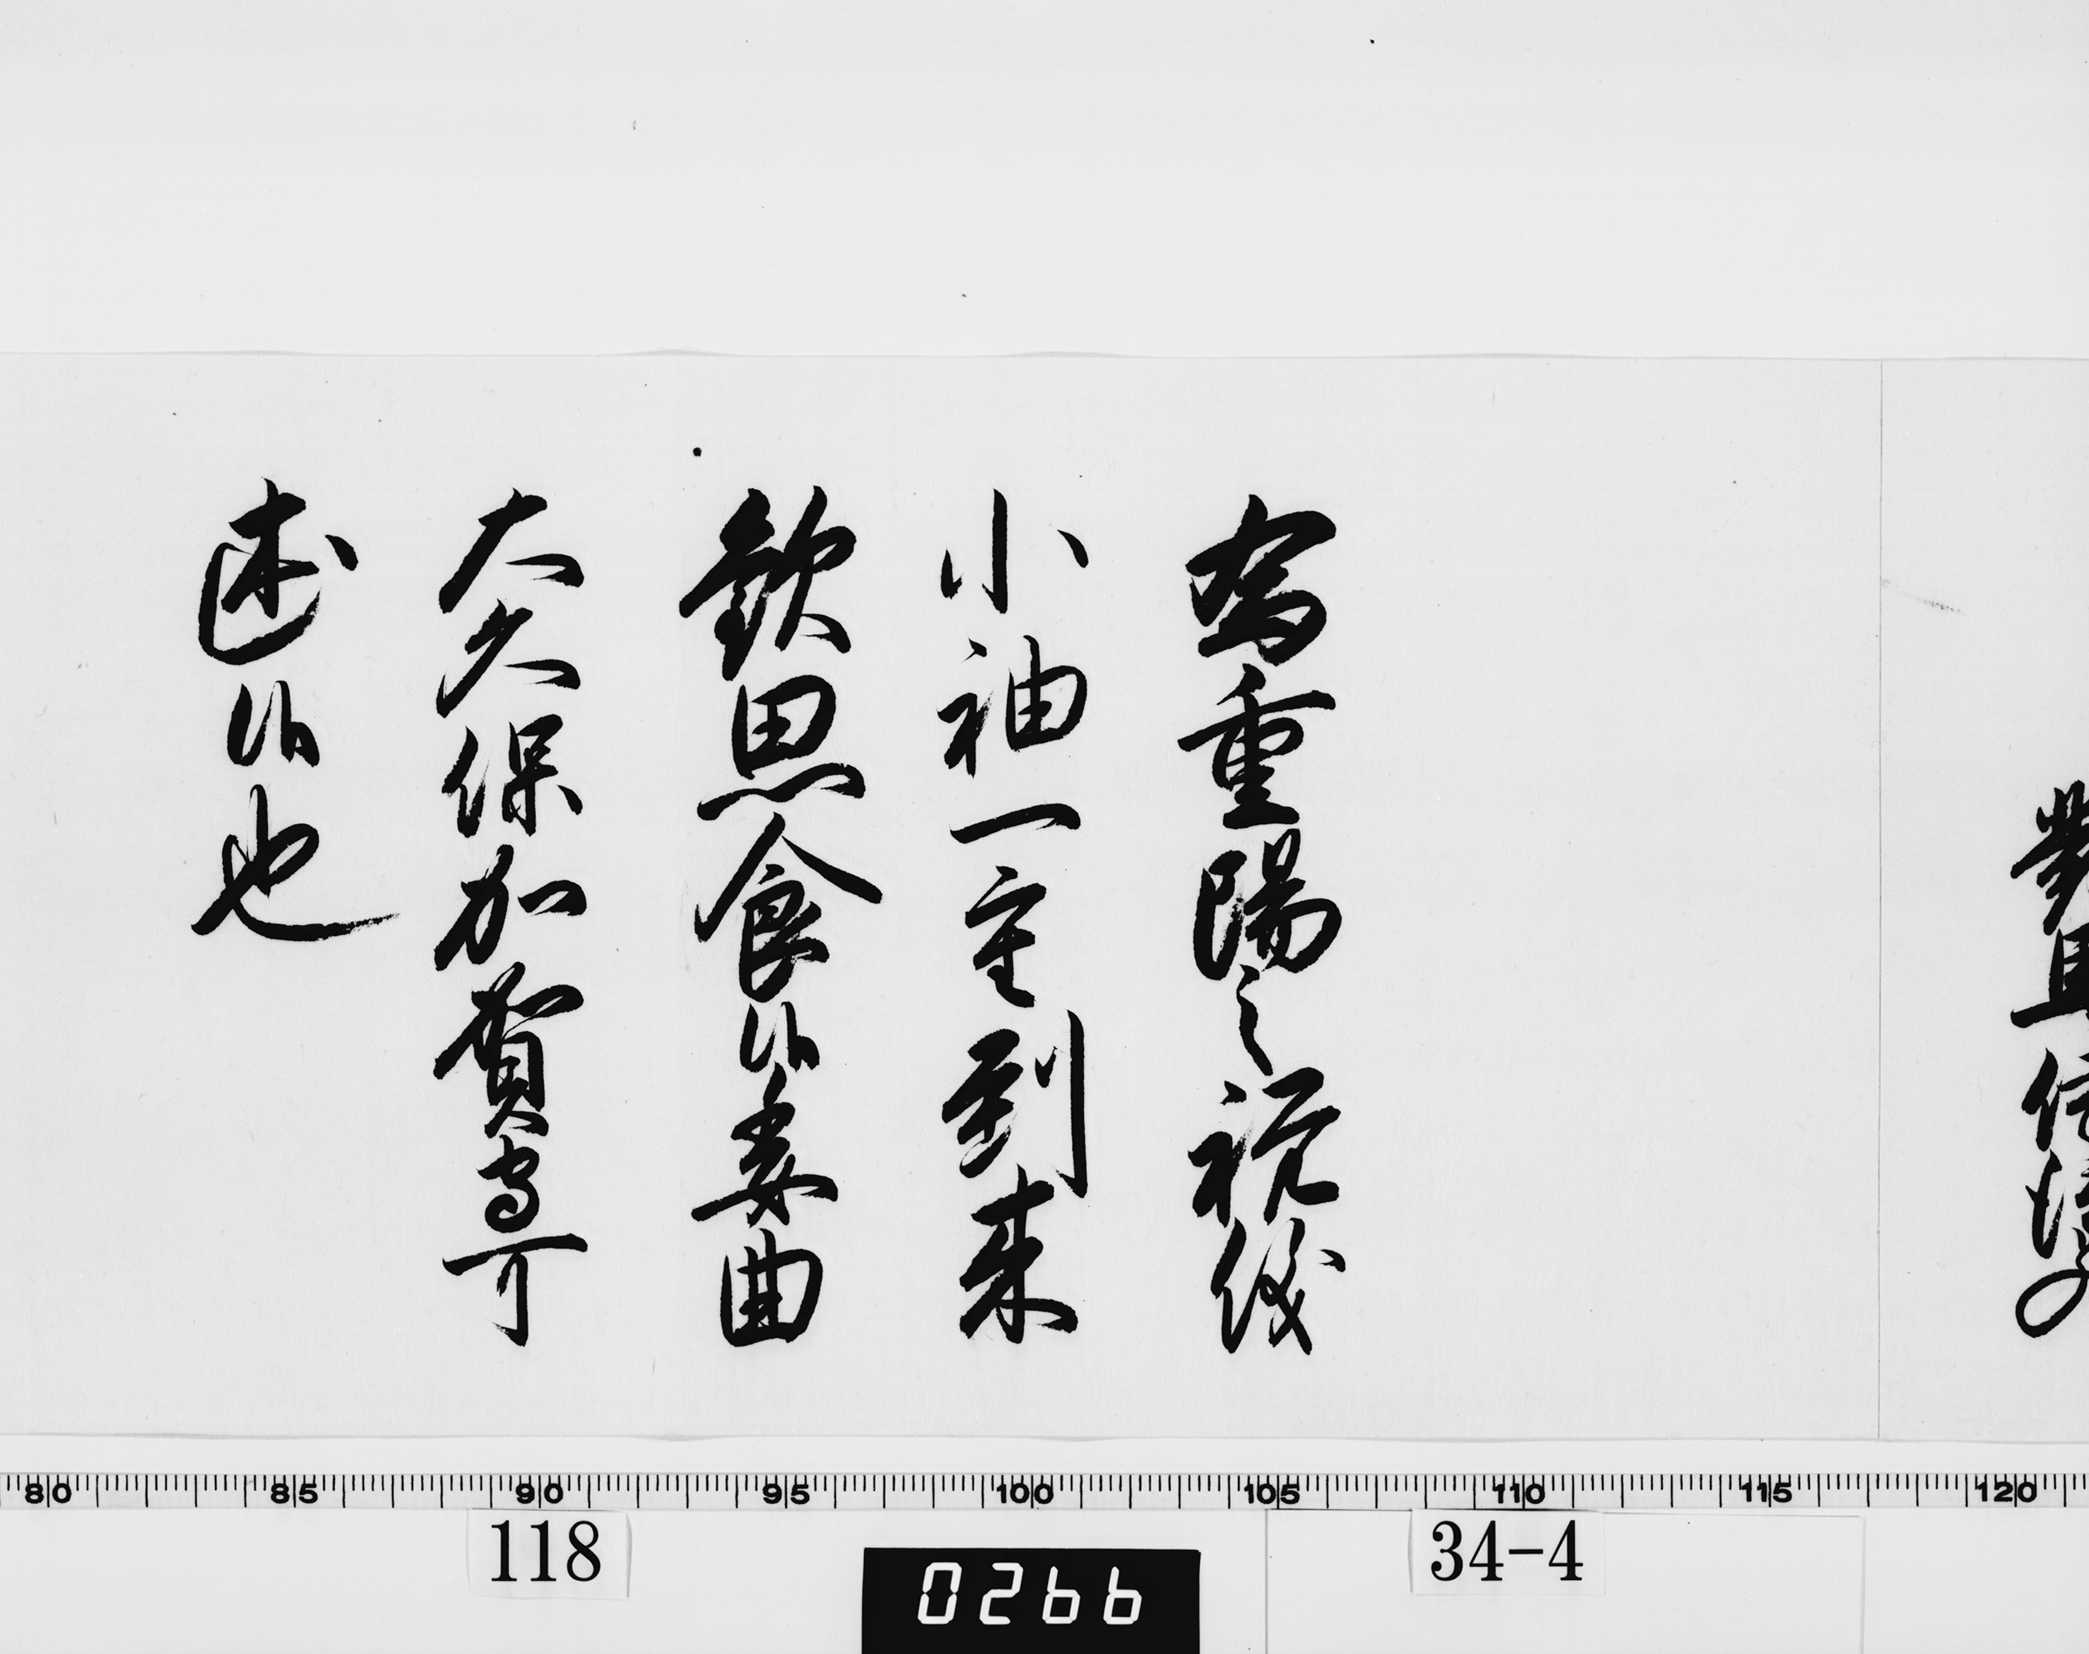 為重陽之祝儀
小袖一重到来
歓思食候委曲
大久保加賀守可
述候也
80 85 90 95 100 105 110 115 120
118
0266
34-4